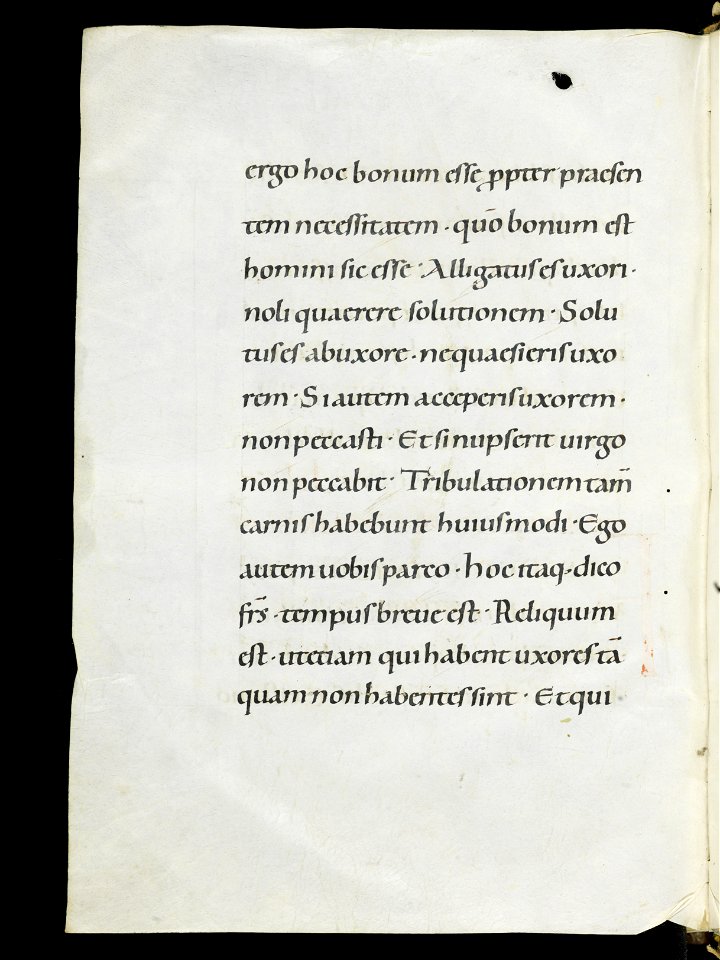 ergo hoc bonum esse ꝓpter praesen
tem necessitatem · quō bonum est
homini sic esse · Alligatus es uxori ·
noli quaerere solutionem · Solu
tus es ab uxore · ne quaesieris uxo
rem · Si autem acceperis uxorem ·
non peccasti · Et si nupserit uirgo
non peccabit · Tribulationem tam̄
carnis habebunt huiusmodi · Ego
autem uobis parco · hoc itaq· dico
frs̄ · tempus breue est · Reliquum
est · ut etiam qui habent uxores tā
quam non habentes sint · Et qui